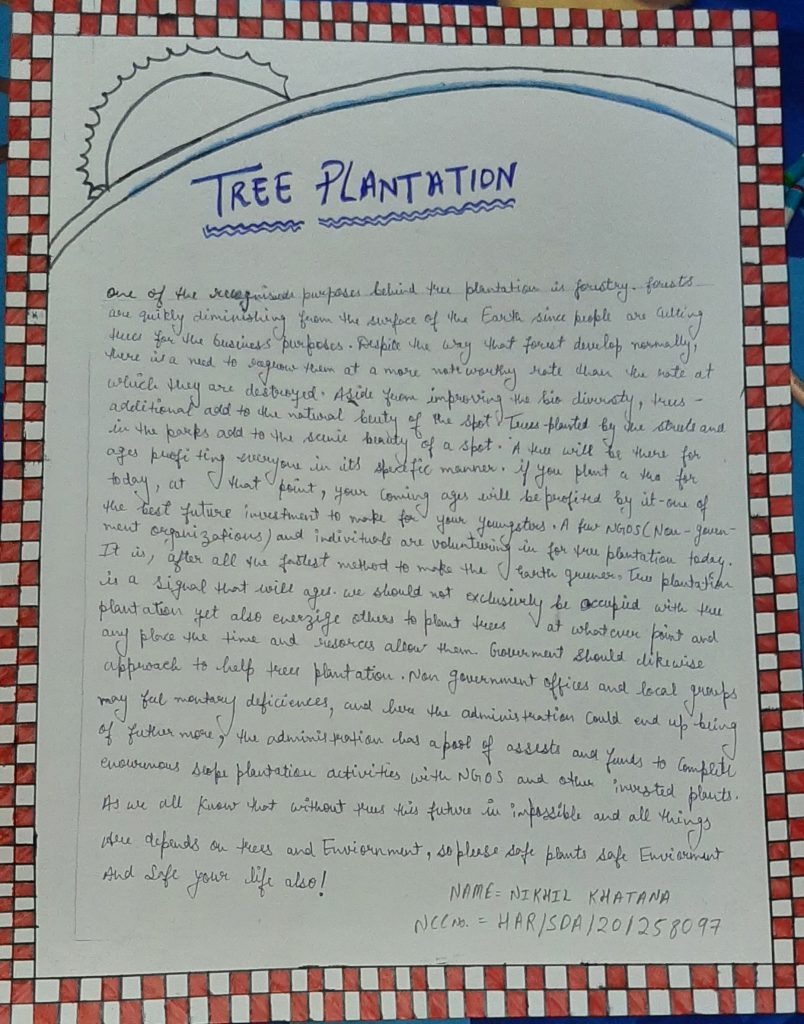 TREE PLANTATION
one of the recognised purposes behind tree plantation is forestry. forests
are quikly diminishing from the surface of the Earth since people are cutting
trees for the business purposes. Despite the way that forest develop normally,
there is a need to regrow them at a more noteworthy rate than the rate at
which they are destroyed. Aside from improving the bio diversty, trees -
additional add to the natural beuty of the spot. Trees planted by the streets and
in the parks add to the scenic beauty of a spot. A tree will be there for
ages profiting everyone in its specific manner. if you plant a tree for
today, at that point, your coming ages will be profited by it-one of
the best future investment to make for your youngsters. A few NGOS (Non-govern-
ment organizations) and indivituals are volunteering in for tree plantation today.
It is, after all the fastest method to make the Earth greener. Tree plantation
is a signal that will ages. we should not exclusivly be occupied with tree
plantation yet also energige others to plant trees at whatever point and
any place the time and resorces allow them. Goverment should likewise
approach to help trees plantation. Non government offices and local groups
may ful montary deficiences, and here the administration could end up being
of futher more, the administration has a pool of assests and funds to complete
enourmous scope plantation activities with NGOS and other invested plants.
As we all know that without trees this future in impossible and all things
Here depends on trees and Enviornment, so please safe plants safe Enviorment
And Safe your life also!
NAME = NIKHIL KHATANA
NCC No. = HAR/SDA/20/258097